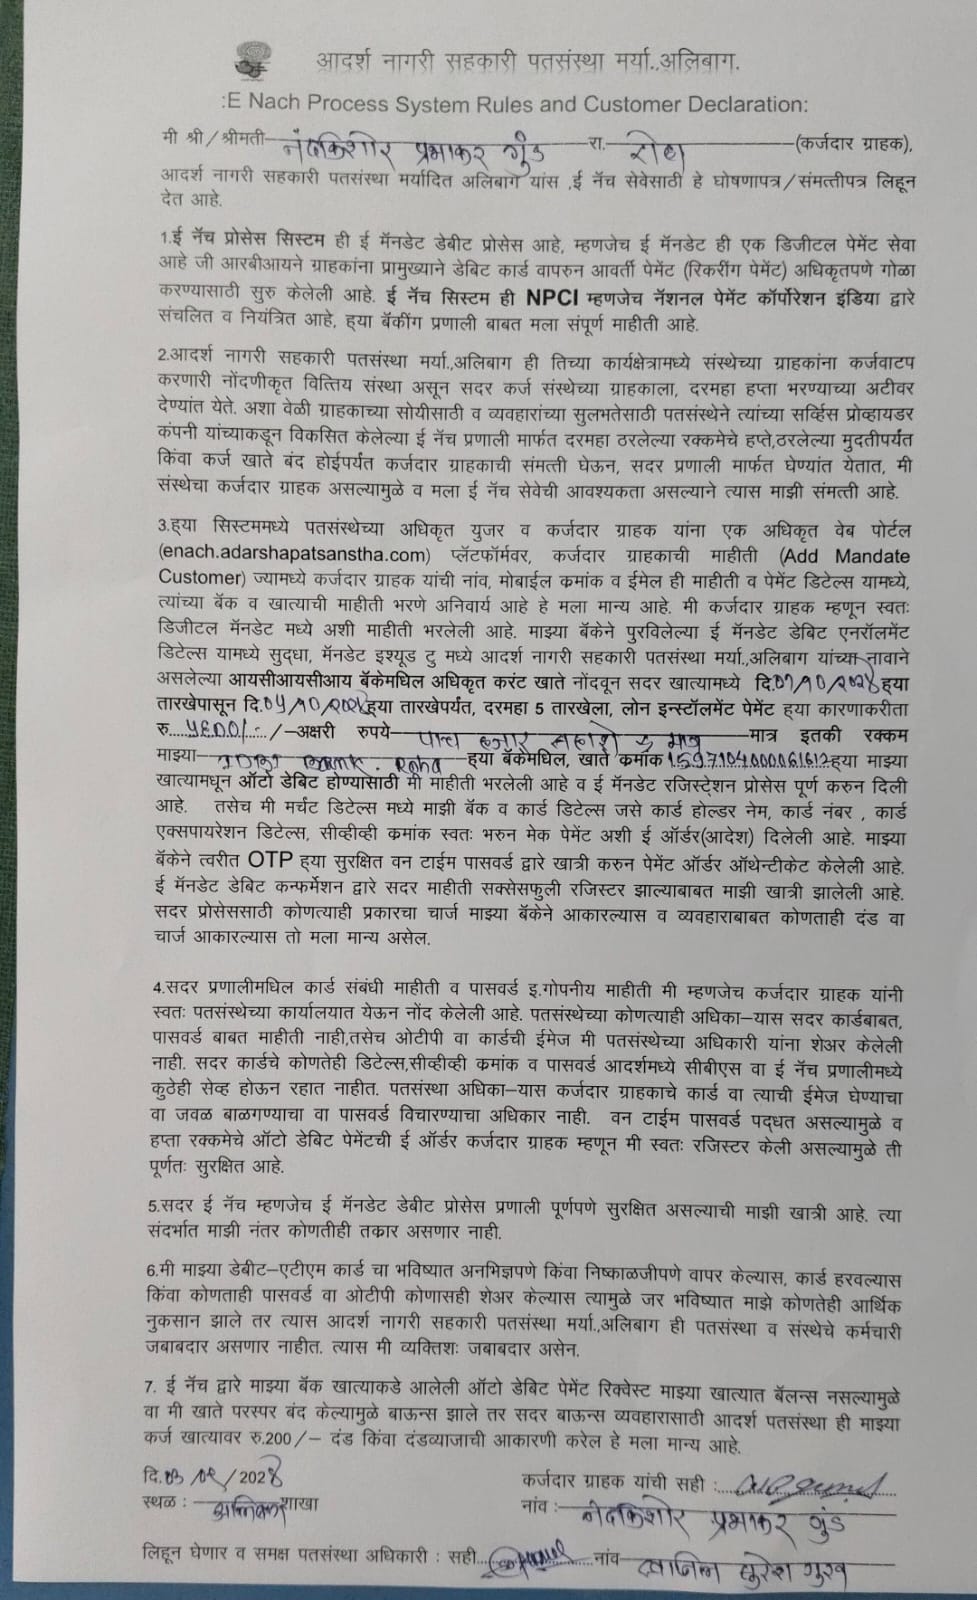 आदर्श नागरी सहकारी पतसंस्था मर्या.,अलिबाग.
:E Nach Process System Rules and Customer Declaration:
मी श्री/श्रीमती नंदकिशोर प्रभाकर गुंड रा. रोहा (कर्जदार ग्राहक),
आदर्श नागरी सहकारी पतसंस्था मर्यादित अलिबाग यांस ,ई नॅच सेवेसाठी हे घोषणापत्र/संमत्तीपत्र लिहून
देत आहे.
1.ई नॅच प्रोसेस सिस्टम ही ई मॅनडेट डेबीट प्रोसेस आहे, म्हणजेच ई मॅनडेट ही एक डिजीटल पेमेंट सेवा
आहे जी आरबीआयने ग्राहकांना प्रामुख्याने डेबिट कार्ड वापरुन आवर्ती पेमेंट (रिकरींग पेमेंट) अधिकृतपणे गोळा
करण्यासाठी सुरु केलेली आहे. ई नॅच सिस्टम ही NPCI म्हणजेच नॅशनल पेमेंट कॉर्पोरेशन इंडिया द्वारे
संचलित व नियंत्रित आहे, ह्या बॅकींग प्रणाली बाबत मला संपूर्ण माहीती आहे.
2.आदर्श नागरी सहकारी पतसंस्था मर्या.,अलिबाग ही तिच्या कार्यक्षेत्रामध्ये संस्थेच्या ग्राहकांना कर्जवाटप
करणारी नोंदणीकृत वित्तिय संस्था असून सदर कर्ज संस्थेच्या ग्राहकाला, दरमहा हप्ता भरण्याच्या अटीवर
देण्यांत येते. अशा वेळी ग्राहकाच्या सोयीसाठी व व्यवहारांच्या सुलभतेसाठी पतसंस्थेने त्यांच्या सर्व्हिस प्रोव्हायडर
कंपनी यांच्याकडून विकसित केलेल्या ई नॅच प्रणाली मार्फत दरमहा ठरलेल्या रक्कमेचे हप्ते,ठरलेल्या मुदतीपर्यंत
किंवा कर्ज खाते बंद होईपर्यंत कर्जदार ग्राहकाची संमत्ती घेऊन, सदर प्रणाली मार्फत घेण्यांत येतात, मी
संस्थेचा कर्जदार ग्राहक असल्यामुळे व मला ई नॅच सेवेची आवश्यकता असल्याने त्यास माझी संमत्ती आहे.
3.ह्या सिस्टममध्ये पतसंस्थेच्या अधिकृत युजर व कर्जदार ग्राहक यांना एक अधिकृत वेब पोर्टल
(enach.adarshapatsanstha.com) प्लॅटफॉर्मवर, कर्जदार ग्राहकाची माहीती (Add Mandate
Customer) ज्यामध्ये कर्जदार ग्राहक यांची नांव, मोबाईल क्रमांक व ईमेल ही माहीती व पेमेंट डिटेल्स यामध्ये,
त्यांच्या बॅक व खात्याची माहीती भरणे अनिवार्य आहे हे मला मान्य आहे. मी कर्जदार ग्राहक म्हणून स्वतः
डिजीटल मॅनडेट मध्ये अशी माहीती भरलेली आहे. माझ्या बॅकेने पुरविलेल्या ई मॅनडेट डेबिट एनरॉलमेंट
डिटेल्स यामध्ये सुद्धा, मॅनडेट इश्यूड टु मध्ये आदर्श नागरी सहकारी पतसंस्था मर्या.,अलिबाग यांच्या नावाने
असलेल्या आयसीआयसीआय बॅकेमधिल अधिकृत करंट खाते नोंदवून सदर खात्यामध्ये दि. ह्या
तारखेपासून दि. ह्या तारखेपर्यंत, दरमहा 5 तारखेला, लोन इन्स्टॉलमेंट पेमेंट ह्या कारणाकरीता
रु. 5600/- /-अक्षरी रुपये पाच हजार सहाशे मात्र इतकी रक्कम
माझ्या IDBI Bank. Roha ह्या बॅकेमधिल, खाते क्रमांक ह्या माझ्या
खात्यामधून ऑटो डेबिट होण्यासाठी मी माहीती भरलेली आहे व ई मॅनडेट रजिस्ट्रेशन प्रोसेस पूर्ण करुन दिली
आहे. तसेच मी मर्चंट डिटेल्स मध्ये माझी बॅक व कार्ड डिटेल्स जसे कार्ड होल्डर नेम, कार्ड नंबर , कार्ड
एक्सपायरेशन डिटेल्स, सीव्हीव्ही क्रमांक स्वतः भरुन मेक पेमेंट अशी ई ऑर्डर(आदेश) दिलेली आहे. माझ्या
बॅकेने त्वरीत OTP ह्या सुरक्षित वन टाईम पासवर्ड द्वारे खात्री करुन पेमेंट ऑर्डर ऑथेन्टीकेट केलेली आहे.
ई मॅनडेट डेबिट कन्फर्मेशन द्वारे सदर माहीती सक्सेसफुली रजिस्टर झाल्याबाबत माझी खात्री झालेली आहे.
सदर प्रोसेससाठी कोणत्याही प्रकारचा चार्ज माझ्या बॅकेने आकारल्यास व व्यवहाराबाबत कोणताही दंड वा
चार्ज आकारल्यास तो मला मान्य असेल.
4.सदर प्रणालीमधिल कार्ड संबंधी माहीती व पासवर्ड इ.गोपनीय माहीती मी म्हणजेच कर्जदार ग्राहक यांनी
स्वतः पतसंस्थेच्या कार्यालयात येऊन नोंद केलेली आहे. पतसंस्थेच्या कोणत्याही अधिका–यास सदर कार्डबाबत,
पासवर्ड बाबत माहीती नाही,तसेच ओटीपी वा कार्डची ईमेज मी पतसंस्थेच्या अधिकारी यांना शेअर केलेली
नाही. सदर कार्डचे कोणतेही डिटेल्स,सीव्हीव्ही क्रमांक व पासवर्ड आदर्शमध्ये सीबीएस वा ई नॅच प्रणालीमध्ये
कुठेही सेव्ह होऊन रहात नाहीत. पतसंस्था अधिका–यास कर्जदार ग्राहकाचे कार्ड वा त्याची ईमेज घेण्याचा
वा जवळ बाळगण्याचा वा पासवर्ड विचारण्याचा अधिकार नाही. वन टाईम पासवर्ड पद्धत असल्यामुळे व
हप्ता रक्कमेचे ऑटो डेबिट पेमेंटची ई ऑर्डर कर्जदार ग्राहक म्हणून मी स्वतः रजिस्टर केली असल्यामुळे ती
पूर्णतः सुरक्षित आहे.
5.सदर ई नॅच म्हणजेच ई मॅनडेट डेबीट प्रोसेस प्रणाली पूर्णपणे सुरक्षित असल्याची माझी खात्री आहे. त्या
संदर्भात माझी नंतर कोणतीही तकार असणार नाही.
6.मी माझ्या डेबीट–एटीएम कार्ड चा भविष्यात अनभिज्ञपणे किंवा निष्काळजीपणे वापर केल्यास, कार्ड हरवल्यास
किंवा कोणताही पासवर्ड वा ओटीपी कोणासही शेअर केल्यास त्यामुळे जर भविष्यात माझे कोणतेही आर्थिक
नुकसान झाले तर त्यास आदर्श नागरी सहकारी पतसंस्था मर्या.,अलिबाग ही पतसंस्था व संस्थेचे कर्मचारी
जबाबदार असणार नाहीत. त्यास मी व्यक्तिशः जबाबदार असेन.
7. ई नॅच द्वारे माझ्या बॅक खात्याकडे आलेली ऑटो डेबिट पेमेंट रिक्वेस्ट माझ्या खात्यात बॅलन्स नसल्यामुळे
वा मी खाते परस्पर बंद केल्यामुळे बाऊन्स झाले तर सदर बाऊन्स व्यवहारासाठी आदर्श पतसंस्था ही माझ्या
कर्ज खात्यावर रु.200/– दंड किंवा दंडव्याजाची आकारणी करेल हे मला मान्य आहे.
दि. /202 कर्जदार ग्राहक यांची सही :
स्थळ : शाखा नांव : नंदकिशोर प्रभाकर गुंड
लिहून घेणार व समक्ष पतसंस्था अधिकारी : सही नांव स्वप्निल सुरेश गुरव